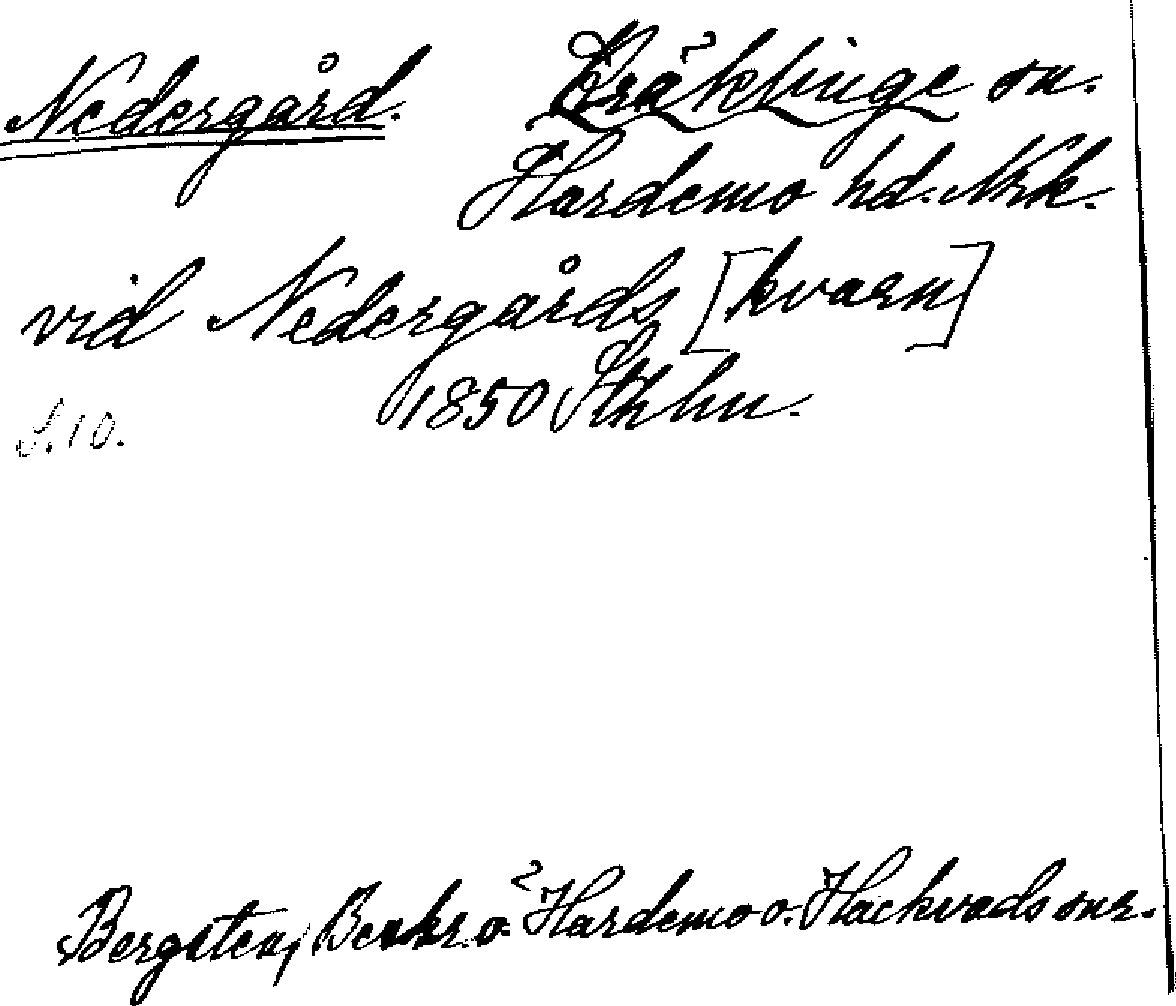 Nedergård. Kräcklinge sn.
Hardemo hd. Nrk.
vid Nedergårds [kvarn]
1850 Sthhn.
S. 10.
Bergsten, Beskr. o. Hardemo o. Hackvads snr.